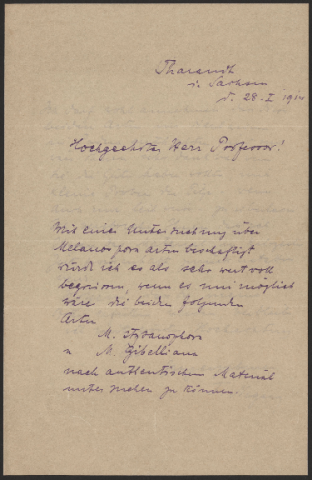 Tharandt
i. Sachsen
d. 28. I 1914
Hochgeehrter Herr Professor!
Mit einer Untersuchung über
Melanospora arten beschäftigt
würde ich es als sehr wertvoll
begrüssen, wenn es mir möglich
wäre die beiden folgenden
Arten
M.
u M. Gibelliana
nach authentischem Material
untersuchen zu können.